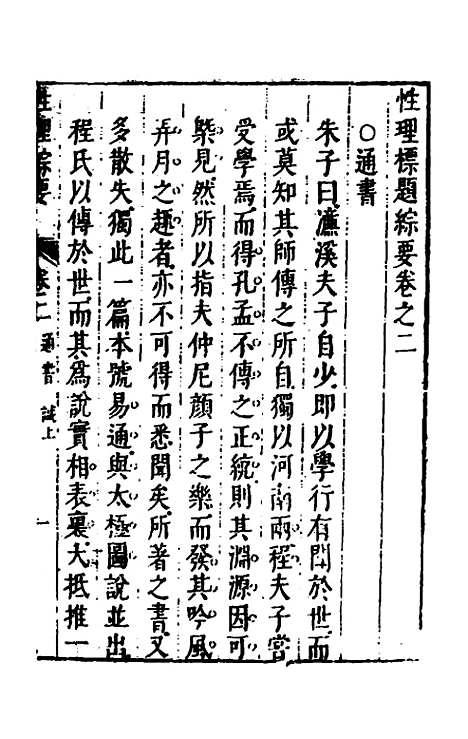 性理標題綜要卷之二
○通書
朱子曰濂溪夫子自少即以學行有聞於世而
或莫知其師傳之所自獨以河南兩程夫子嘗
受學焉而得孔孟不傳之正統則其淵源因可
槩見然所以指夫仲尼顏子之樂而發其吟風
弄月之趣者亦不可得而悉聞矣所著之書又
多散失獨此一篇本號易通與太極圖說並出
程氏以傳於世而其為說實相表裏大抵推一
性理綜要 卷之二 通書 誠上 一